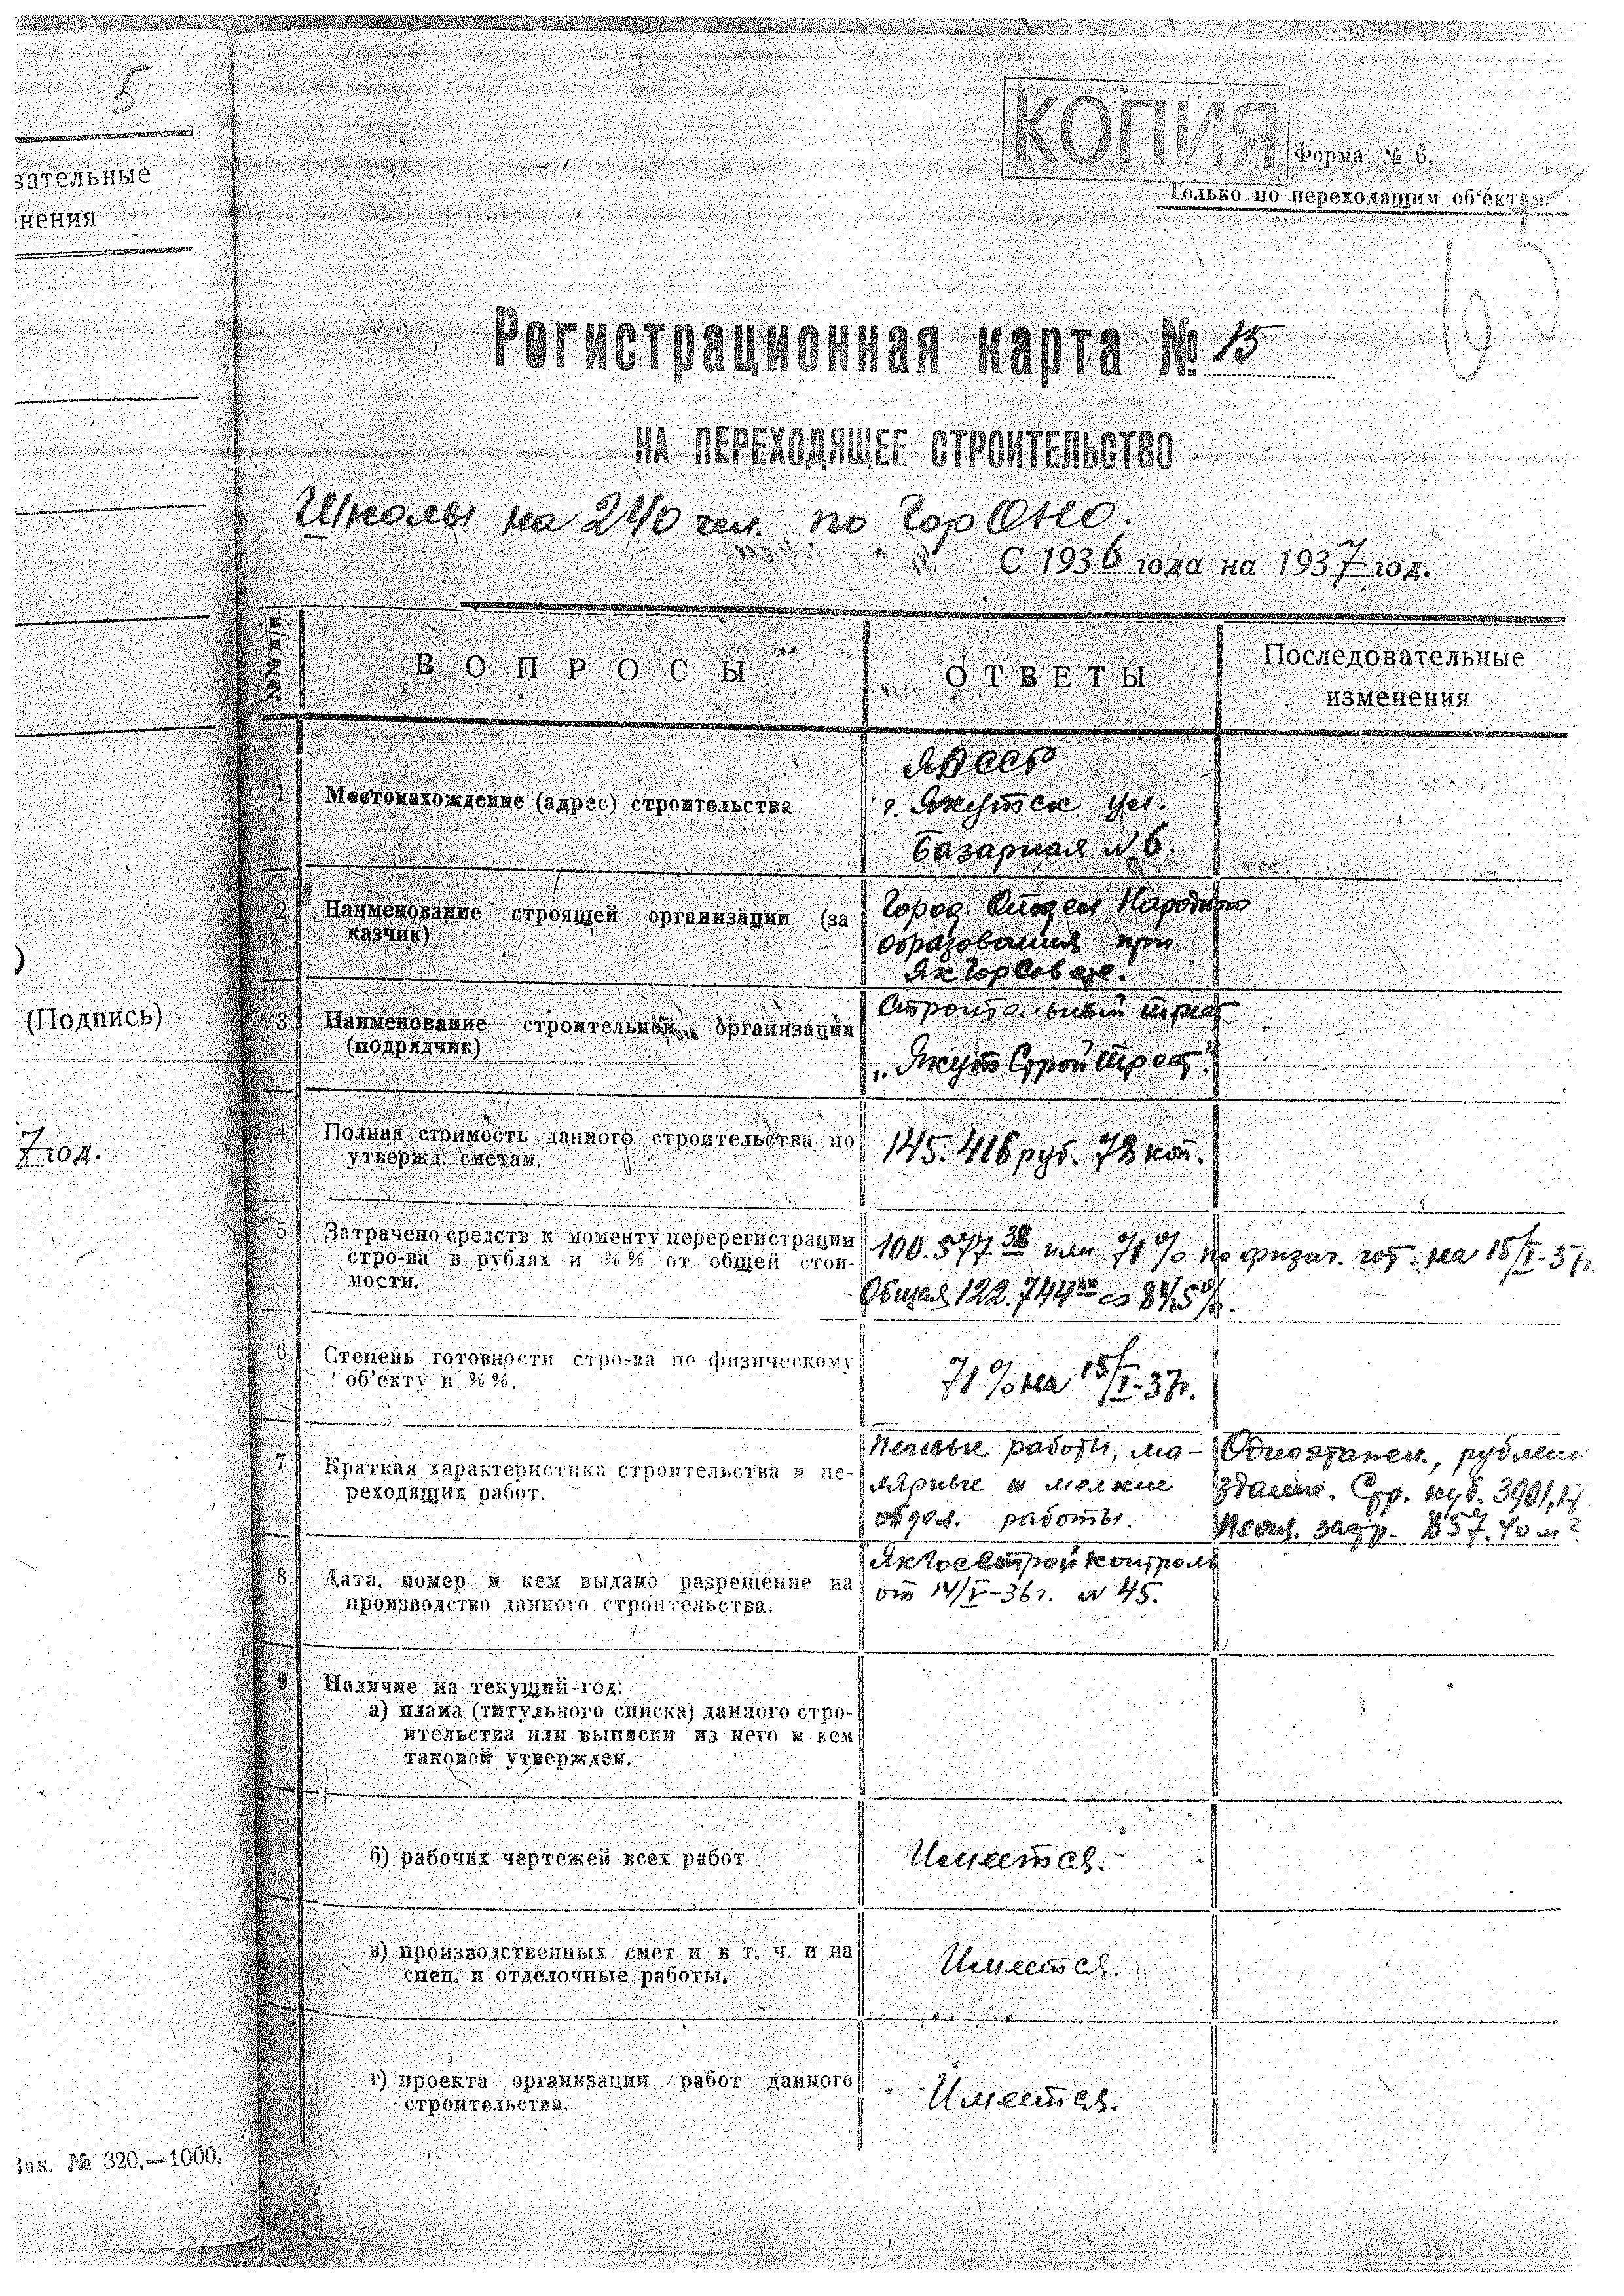 5
зательные
нения
(Подпись)
7 год.
Зак. № 320.—1000.
КОПИЯ
Форма № 6.
Только по переходящим об'ектам
Регистрационная карта № 15
НА ПЕРЕХОДЯЩЕЕ СТРОИТЕЛЬСТВО
Школы на 240 чел. по ГорОНО.
С 1936 года на 1937 год.
№№ п/п
ВОПРОСЫ
ОТВЕТЫ
Последовательные
изменения
1
Местонахождение (адрес) строительства
ЯАССР
г. Якутск ул.
Базарная № 6.
2
Наименование строящей организации (за
казчик)
Город. Отдел Народного
образования при
ЯкГорСовете.
3
Наименование строительной организации
(подрядчик)
Строительный трест
„ЯкутСтройТрест".
4
Полная стоимость данного строительства по
утвержд. сметам.
145.416 руб. 78 коп.
5
Затрачено средств к моменту перерегистрации
стро-ва в рублях и %% от общей стои-
мости.
100.577 38 или 71% по физич. гот. на 15/I-37г.
Общая 122.744 84,5%.
6
Степень готовности стро-ва по физическому
об'екту в %%.
71% на 15/I-37г.
7
Краткая характеристика строительства и пе-
реходящих работ.
Печные работы, ма-
лярные и мелкие
отдел. работы.
Одноэтажн., рублен
здание. Стр. куб. 3901,17
застр. 857.40 м²
8
Дата, номер и кем выдано разрешение на
производство данного строительства.
ЯкГосСтройконтроль
от 14/V-36г. № 45.
9
Наличие на текущий год:
а) плана (титульного списка) данного стро-
ительства или выписки из него и кем
таковой утвержден.
б) рабочих чертежей всех работ
Имеется.
в) производственных смет и в т. ч. и на
спец. и отделочные работы.
Имеется.
г) проекта организации работ данного
строительства.
Имеется.